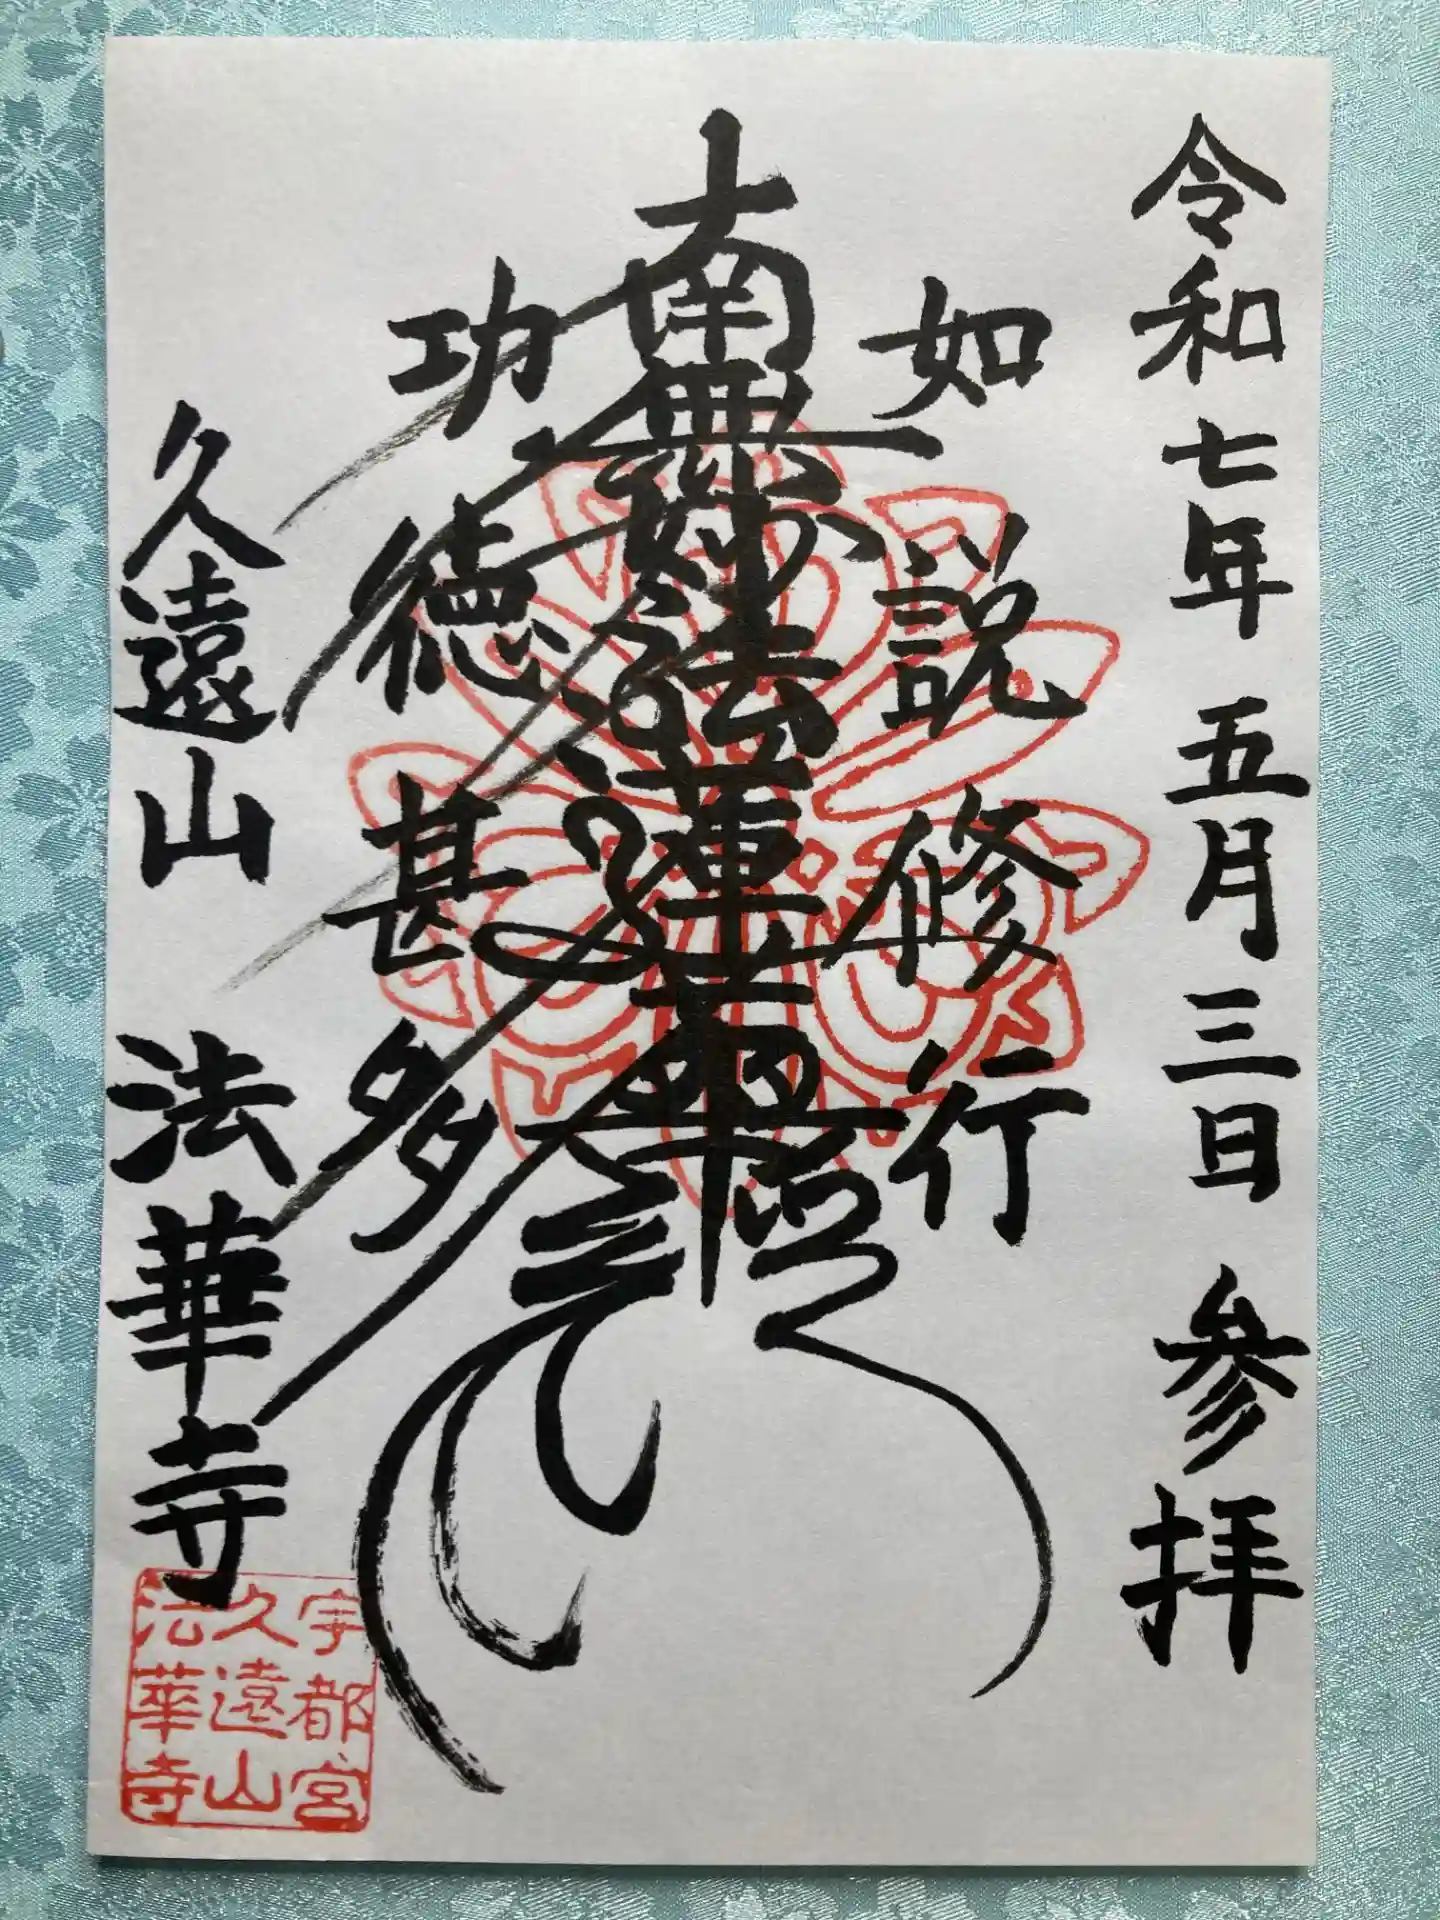 令和七年 五月三日 参拝
如説修行
南無妙法蓮華経
功徳甚多
久遠山 法華寺
宇都宮
久遠山
法華寺